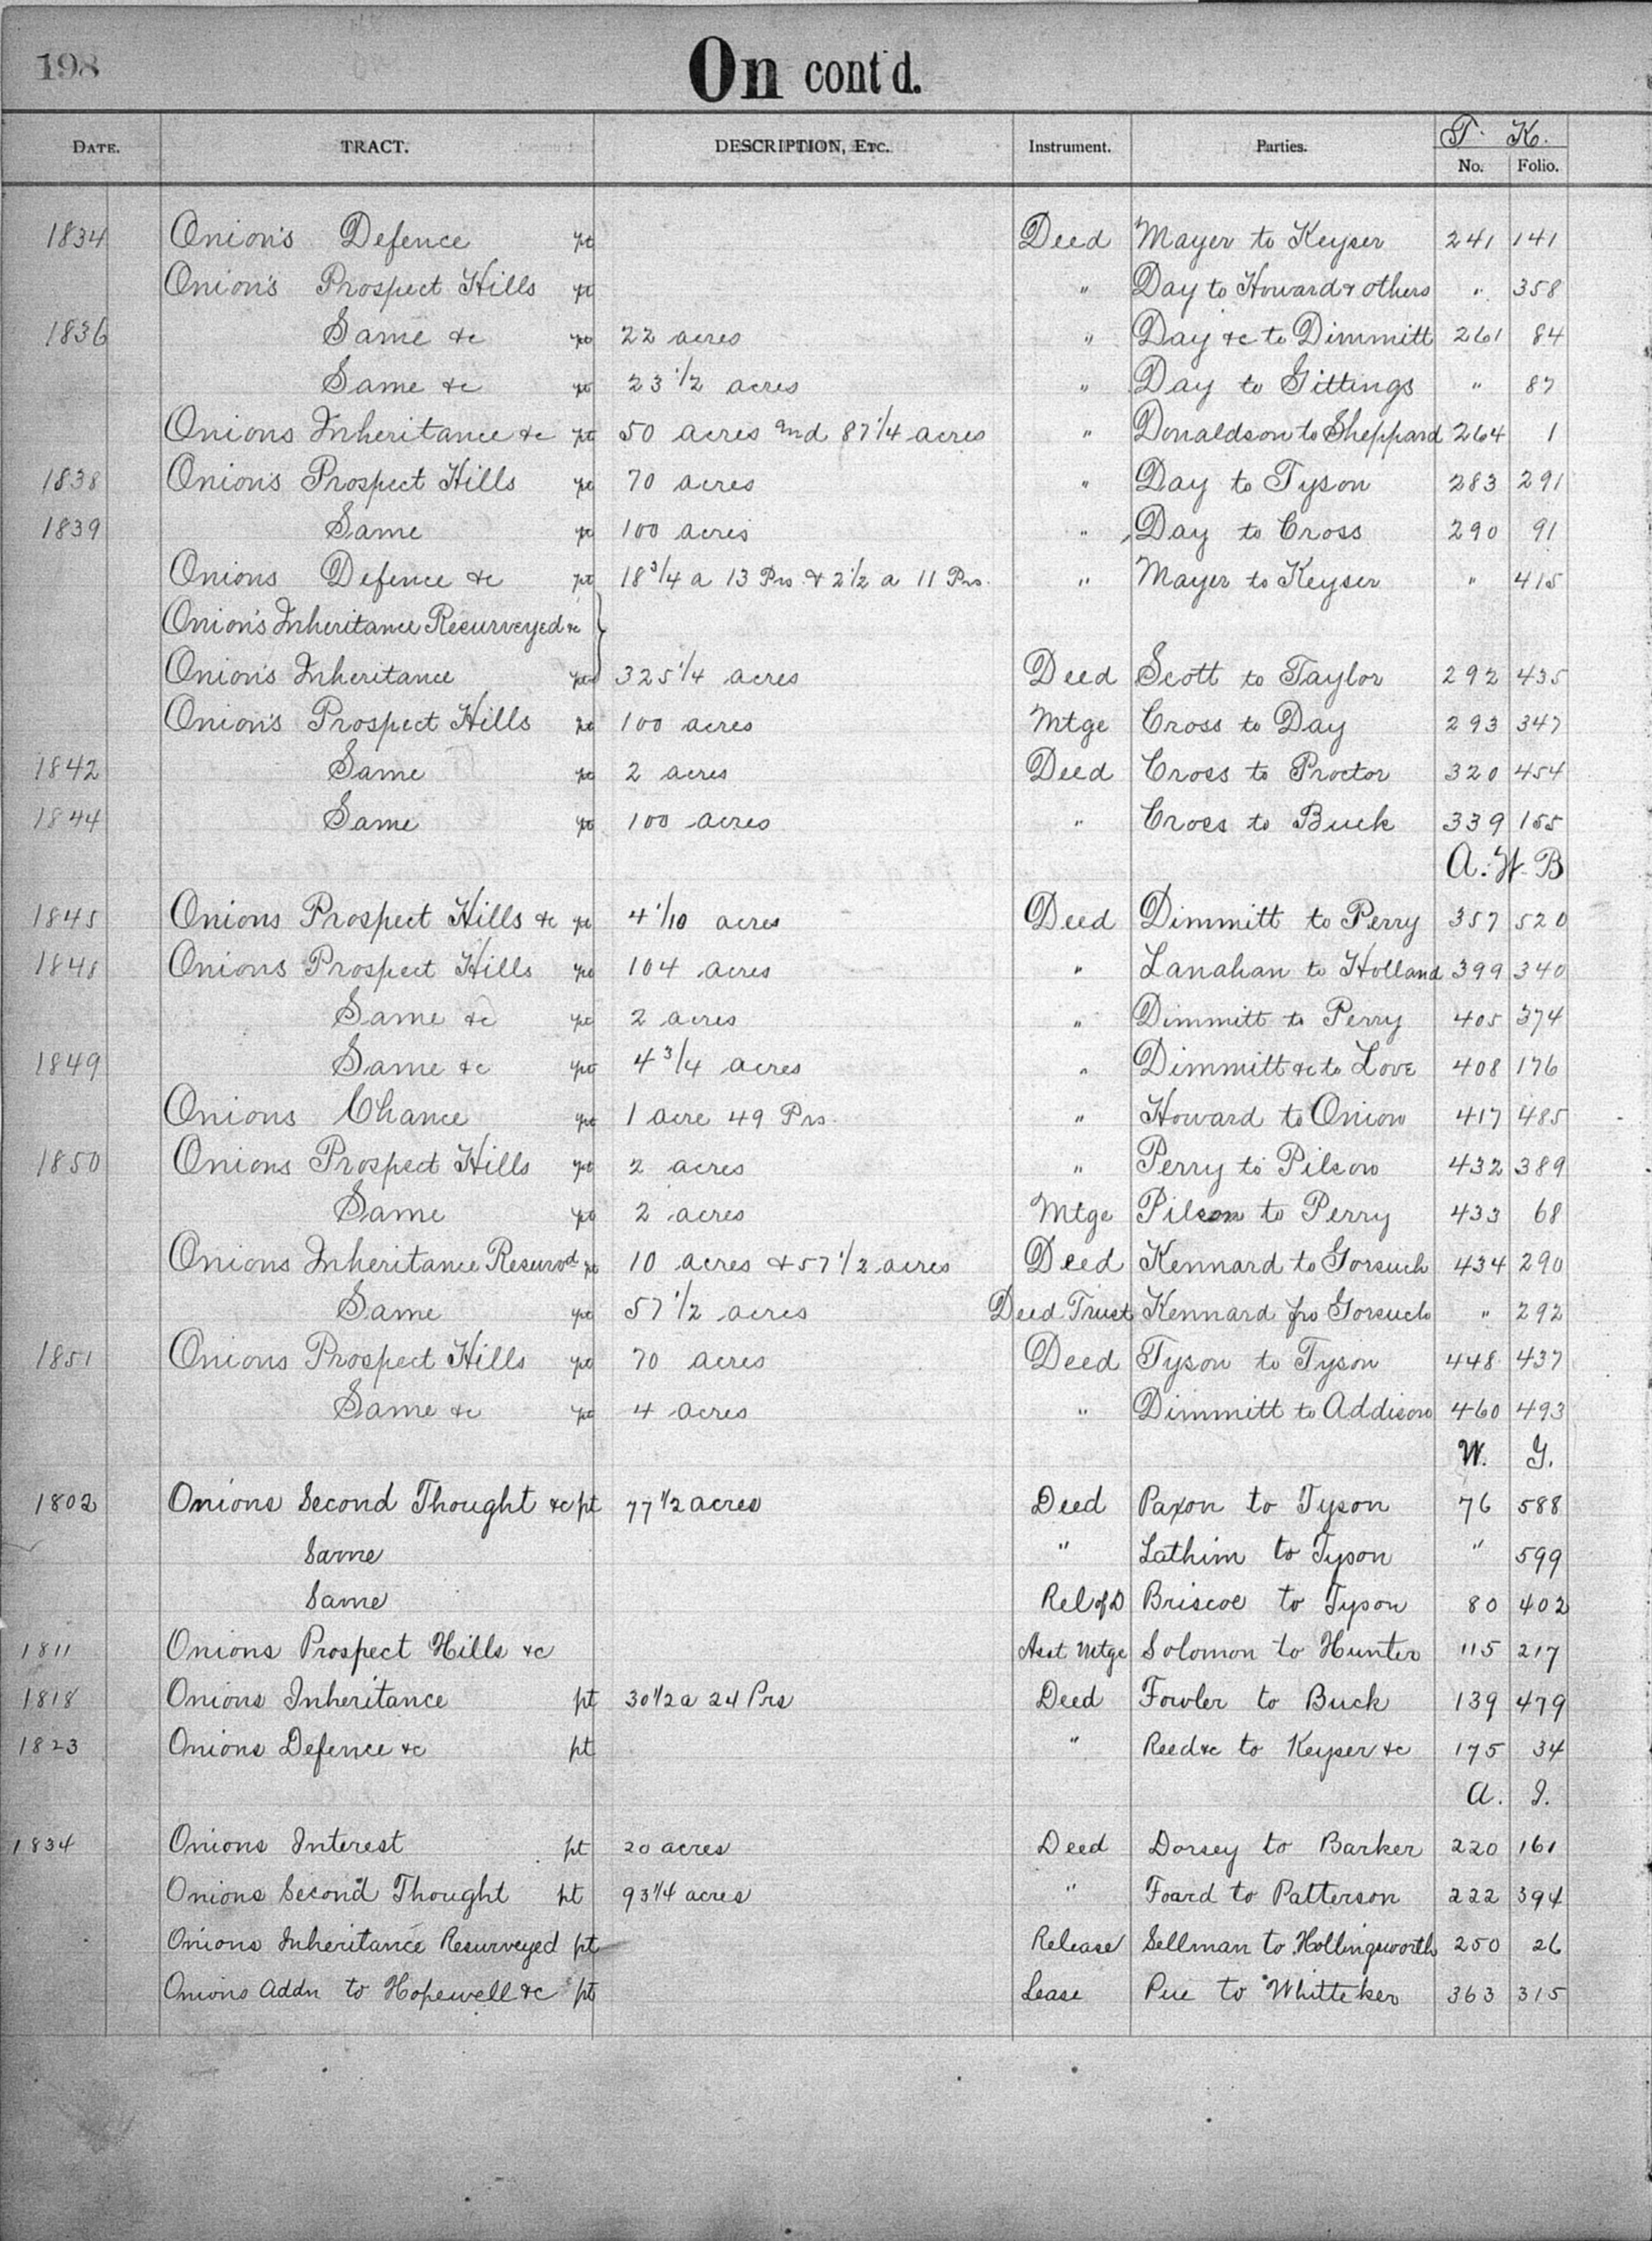 198
On cont'd.
T. K.
DATE. TRACT. DESCRIPTION, ETC. Instrument. Parties. No. Folio.
1834 Onion's Defence pt Deed Mayer to Keyser 241 141
Onion's Prospect Hills pt " Day to Howard & others " 358
1836 Same &c pt 22 acres " Day &c to Dimmitt 261 84
Same &c pt 23 1/2 acres " Day to Gittings " 87
Onions Inheritance &c pt 50 acres and 87 1/4 acres " Donaldson to Sheppard 264 1
1838 Onion's Prospect Hills pt 70 acres " Day to Tyson 283 291
1839 Same pt 100 acres " Day to Cross 290 91
Onions Defence &c pt 18 3/4 a 13 Prs & 2 1/2 a 11 Prs. " Mayer to Keyser " 415
Onion's Inheritance Resurveyed &c
Onion's Inheritance pt 325 1/4 acres Deed Scott to Taylor 292 435
Onion's Prospect Hills pt 100 acres Mtge Cross to Day 293 347
1842 Same pt 2 acres Deed Cross to Proctor 320 454
1844 Same pt 100 acres " Cross to Buck 339 155
A. W. B
1845 Onions Prospect Hills &c pt 4 1/10 acres Deed Dimmitt to Perry 357 520
1848 Onions Prospect Hills pt 104 acres " Lanahan to Holland 399 340
Same &c pt 2 acres " Dimmitt to Perry 405 374
1849 Same &c pt 4 3/4 acres " Dimmitt &c to Love 408 176
Onions Chance pt 1 acre 49 Prs. " Howard to Onion 417 485
1850 Onions Prospect Hills pt 2 acres " Perry to Pilson 432 389
Same pt 2 acres Mtge Pilson to Perry 433 68
Onions Inheritance Resurvd pt 10 acres & 57 1/2 acres Deed Kennard to Gorsuch 434 290
Same pt 57 1/2 acres Deed Trust Kennard fro Gorsuch " 292
1851 Onions Prospect Hills pt 70 acres Deed Tyson to Tyson 448 437
Same &c pt 4 acres " Dimmitt to Addison 460 493
W. G.
1802 Onions Second Thought &c pt 77 1/2 acres Deed Paxon to Tyson 76 588
Same " Lathim to Tyson " 599
Same Rel of D Briscoe to Tyson 80 402
1811 Onions Prospect Hills &c Asst Mtge Solomon to Hunter 115 217
1818 Onions Inheritance pt 30 1/2 a 24 Prs Deed Fowler to Buck 139 479
1823 Onions Defence &c pt " Reed &c to Keyser &c 175 34
A. I.
1834 Onions Interest pt 20 acres Deed Dorsey to Barker 220 161
Onions Second Thought pt 93 1/4 acres " Foard to Patterson 222 394
Onions Inheritance Resurveyed pt Release Sellman to Hollingsworth 250 26
Onions Addn to Hopewell &c pt Lease Pue to Whitteker 363 315